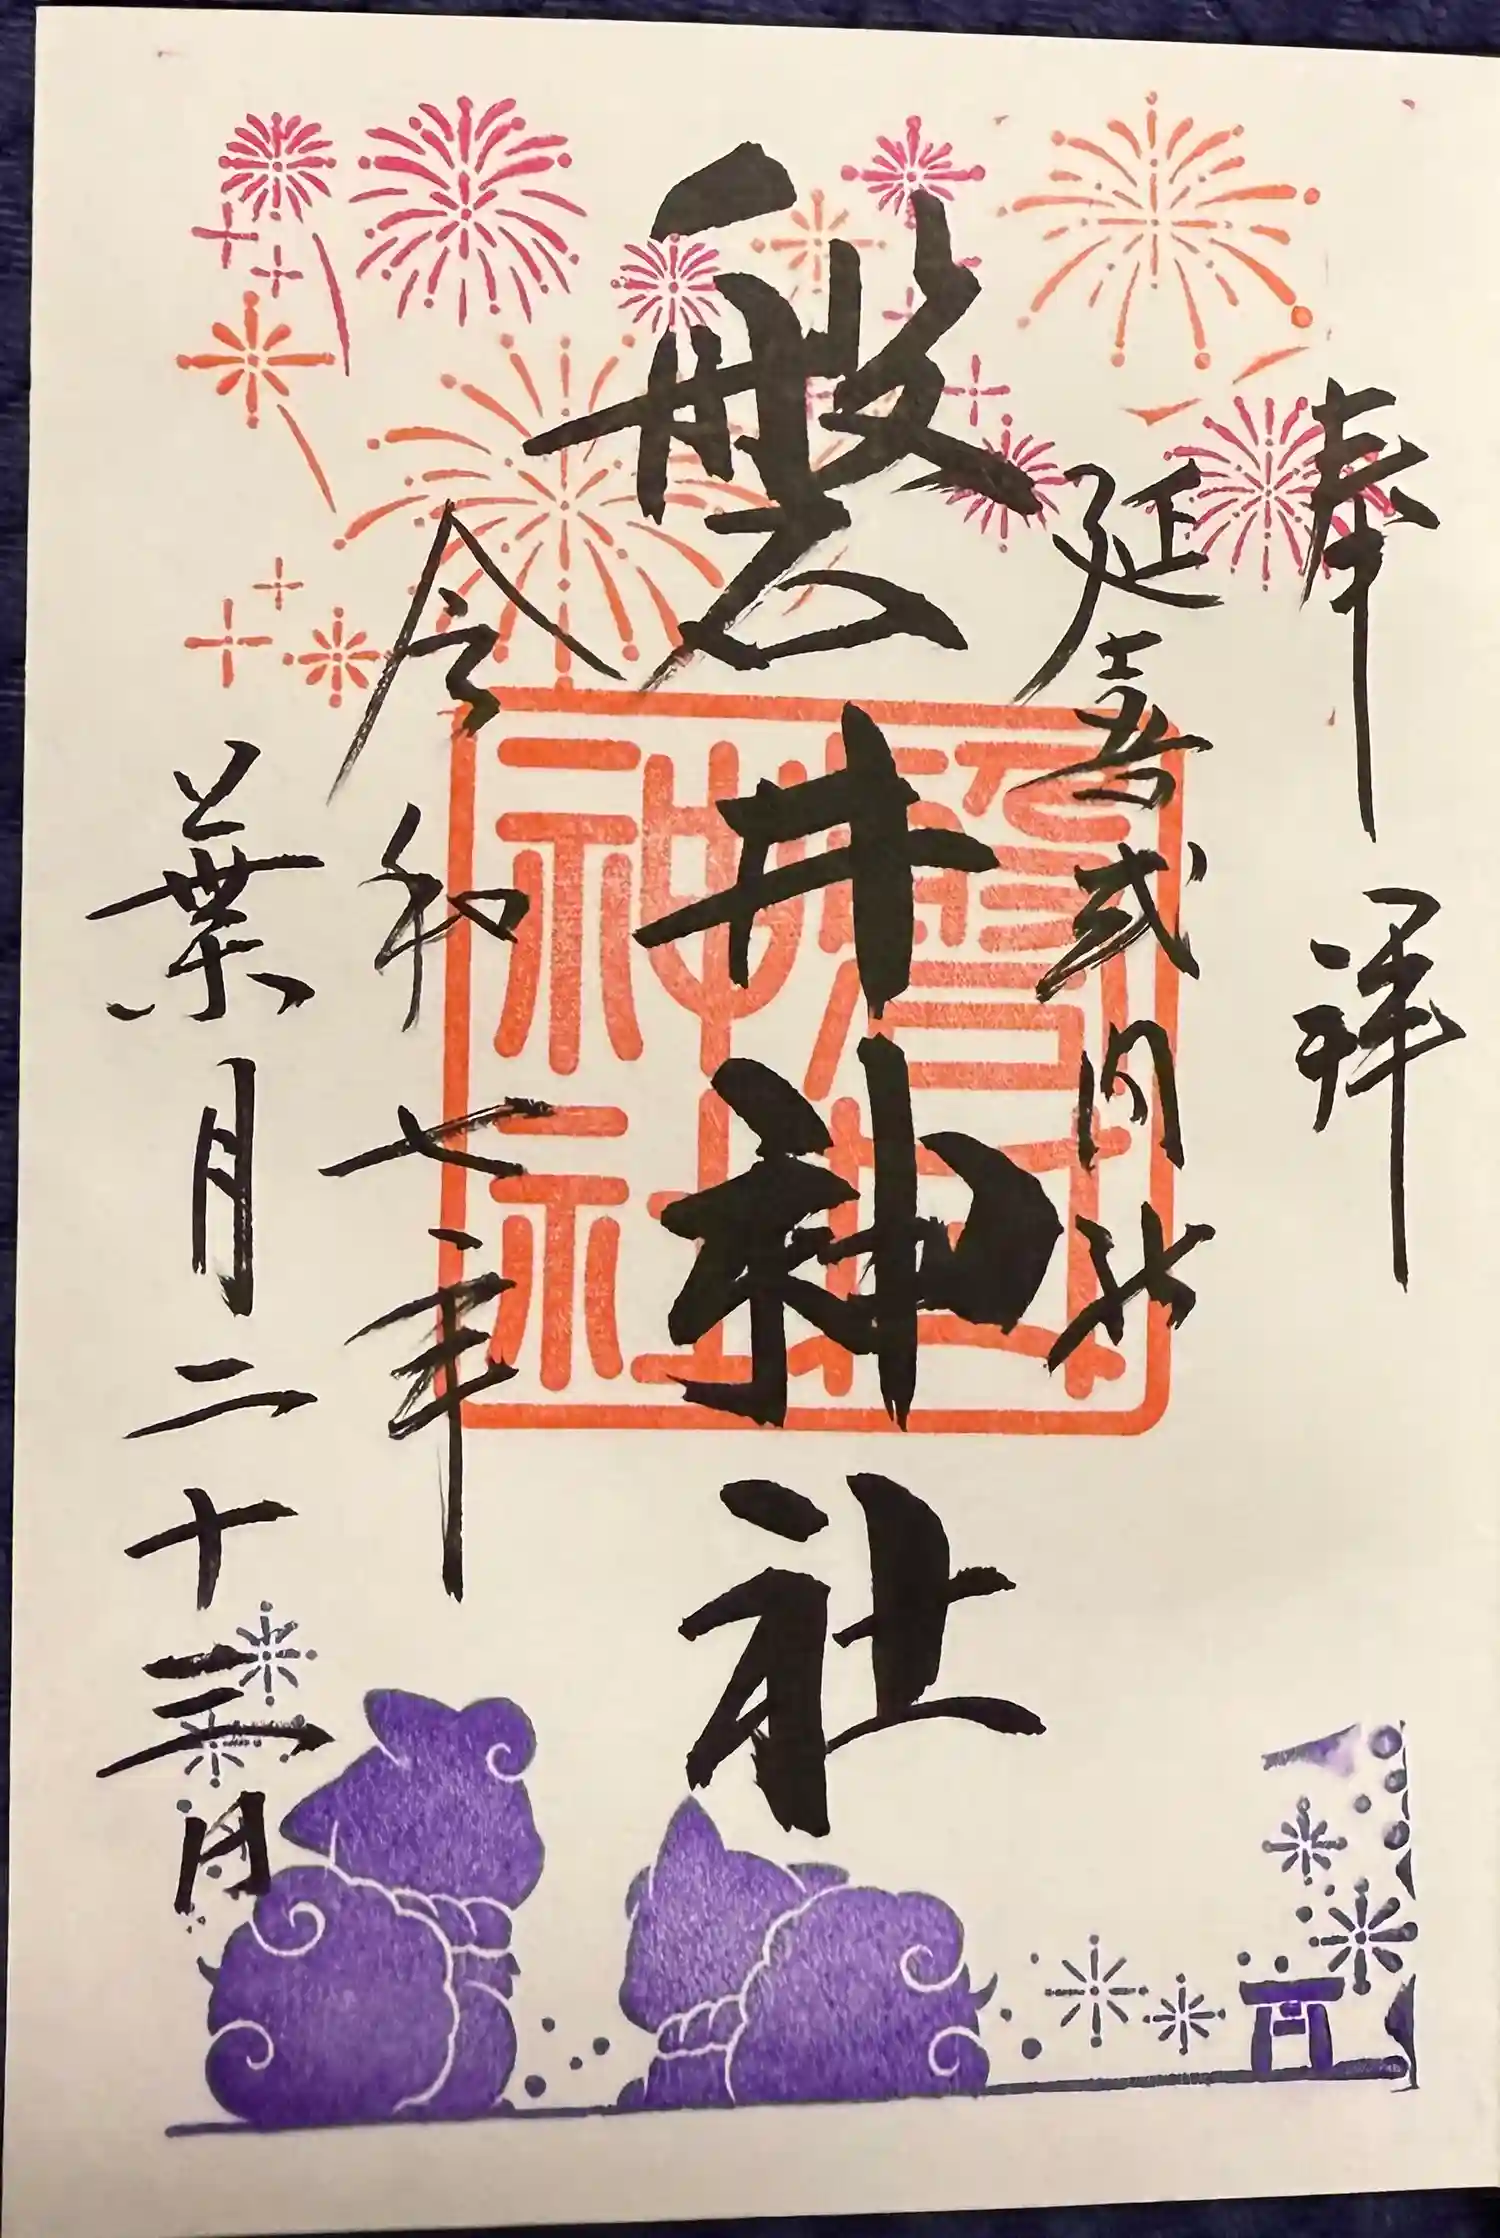 奉拝
延喜式内社
磐井神社
令和七年
葉月二十三日